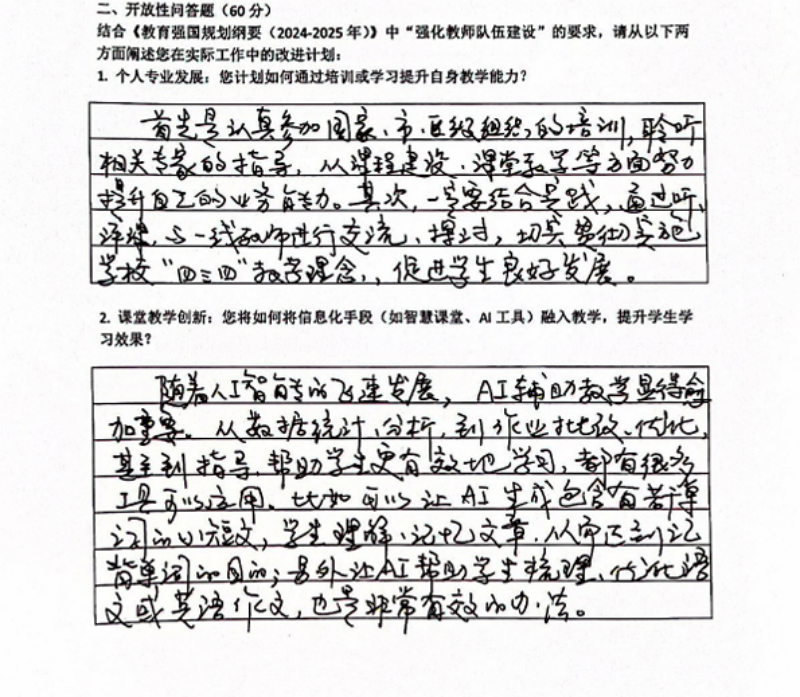 二、开放性问答题（60 分）
结合《教育强国规划纲要（2024-2025 年）》中“强化教师队伍建设”的要求，请从以下两
方面阐述您在实际工作中的改进计划：
1. 个人专业发展：您计划如何通过培训或学习提升自身教学能力？
首先是认真参加国家、市、区级组织的培训，聆听
相关专家的指导，从课程建设、课堂教学等方面努力
提升自己的业务能力。其次，一定要结合实践，通过听、
评课，与一线教师进行交流、探讨，切实贯彻实施
学校“四三四”教学理念，，促进学生良好发展。
2. 课堂教学创新：您将如何将信息化手段（如智慧课堂、AI 工具）融入教学，提升学生学
习效果？
随着人工智能的飞速发展，AI辅助教学显得愈
加重要。从数据统计、分析，到作业批改、优化，
甚至到指导、帮助学生更有效地学习，都有很多
工具可以应用。比如可以让AI生成包含有若干单
词的小短文，学生理解、记忆文章，从而达到记
背单词的目的；另外让AI帮助学生梳理、优化语
文或英语作文，也是非常有效的办法。